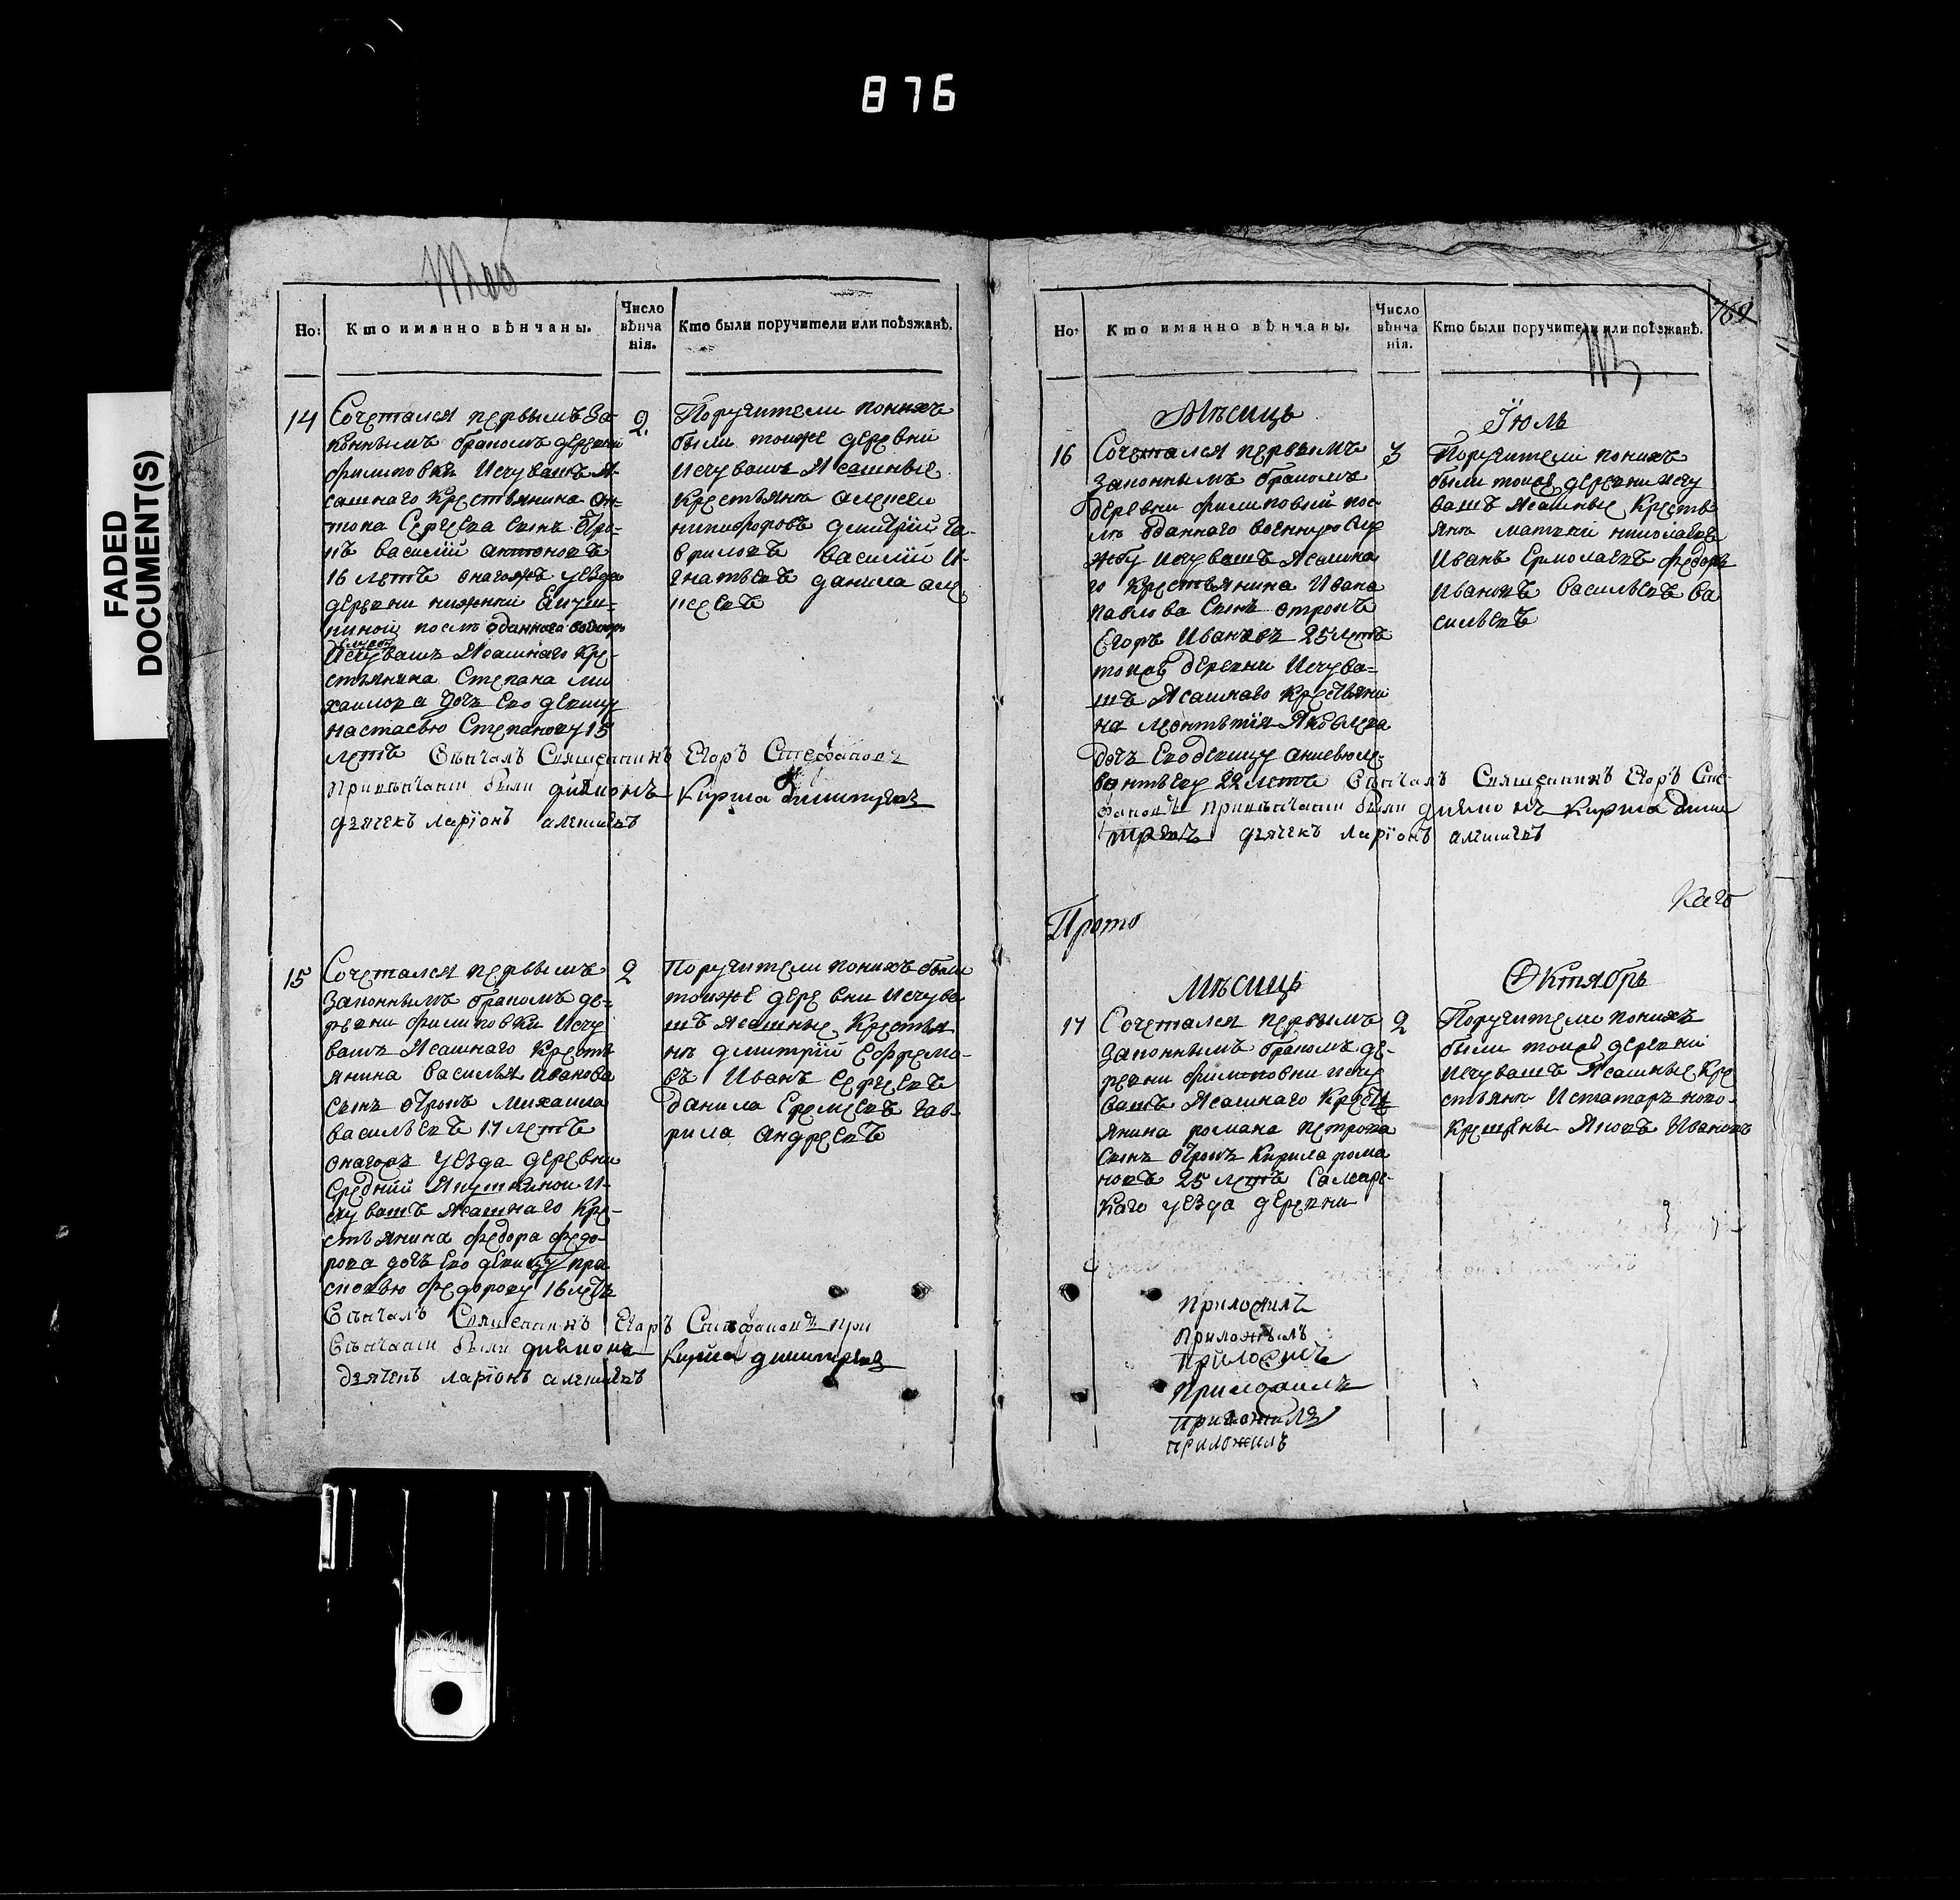 876
FADED
DOCUMENT(S)
Но:
Кто имянно вѣнчаны.
Число
вѣнча
нія.
Кто были поручители или поѣзжанѣ.
14
Сочетался первымъ за
коннымъ бракомъ деревни
филиповки Исчувашъ Я
сашнаго Крестьянина Ан
тона Сергеева сынъ Отро
къ василий антоновъ
16 летъ онагожъ уезда
деревни нижнии Якуш
киной после отданнаго
службу
Исчувашъ Ясашнаго Кре
стьянина Степана Ми
хаилова дочь Ево девицу
настасью Степанову 15
летъ Венчалъ Священникъ Егоръ Стефановъ
Привенчании были дияконъ Кирила Димитриевъ
дьячекъ ларионъ алексиевъ
2.
Поручители понихъ
были тоижъ деревни
Исчувашъ Ясашные
Крестьяня алексеи
никифоровъ дмитрий га
вриловъ василий И
гнатьевъ данила але
ксеевъ
15
Сочетался первымъ
законнымъ бракомъ де
ревни филиповки Исчу
вашъ Ясашнаго Кресть
янина василья иванова
сынъ Отрокъ михаила
васильевъ 17 летъ
онагожъ уезда деревни
средний Якушкинои И
счувашъ Ясашнаго Кре
стьянина федора федо
рова дочь Ево девицу пра
сковью федорову 16 летъ
Венчалъ Священникъ Егоръ Стефановъ при
Венчании были дияконъ Кирила димитриевъ
дьячекъ ларионъ алексиевъ
2
Поручители понихъ были
тоижъ деревни Исчува
шъ Ясашные Крестья
нъ дмитрий Еффремо
въ Иванъ Сергеевъ
данила Еремеевъ гав
рила андреевъ
Но:
Кто имянно вѣнчаны.
Число
вѣнча
нія.
Кто были поручители или поѣзжанѣ.
769
Мѣсяцъ Їюль
16
Сочетался первымъ
законнымъ бракомъ
деревни филиповки пос
ле отданнаго военную слу
жбу Исчувашъ Ясашна
го Крестьянина Ивана
павлова сынъ отрокъ
Егоръ Ивановъ 25 летъ
тоижъ деревни Исчува
шъ Ясашнаго Крестьяни
на леонтьтия Яковлева
дочь Ево девицу
леонтьеву 22 летъ Венчалъ Священникъ Егоръ Сте
фановъ Привенчании были дияконъ Кирила Дими
триевъ дьячекъ ларионъ алексиевъ
3
Поручители понихъ
были тоижъ деревни исчу
вашъ Ясашные Кресть
янъ матвей николаевъ
Иванъ Ермолаевъ федоръ
Ивановъ Васильевъ ва
сильевъ
Каго
Прото
Мѣсяцъ Октябрь
17
Сочетался первымъ
законнымъ бракомъ де
ревни филиповки исчу
вашъ Ясашнаго Кресть
янина романа петрова
сынъ Отрокъ Кирила рома
новъ 25 летъ Самарс
каго уезда деревни
2
Поручители понихъ
были тоижъ деревни
Исчувашъ Ясашные Кре
стьянъ Исъ татаръ ново
крещены Яковъ Ивановъ
Приложилъ
Приложилъ
Приложилъ
Приложилъ
Приложилъ
приложилъ